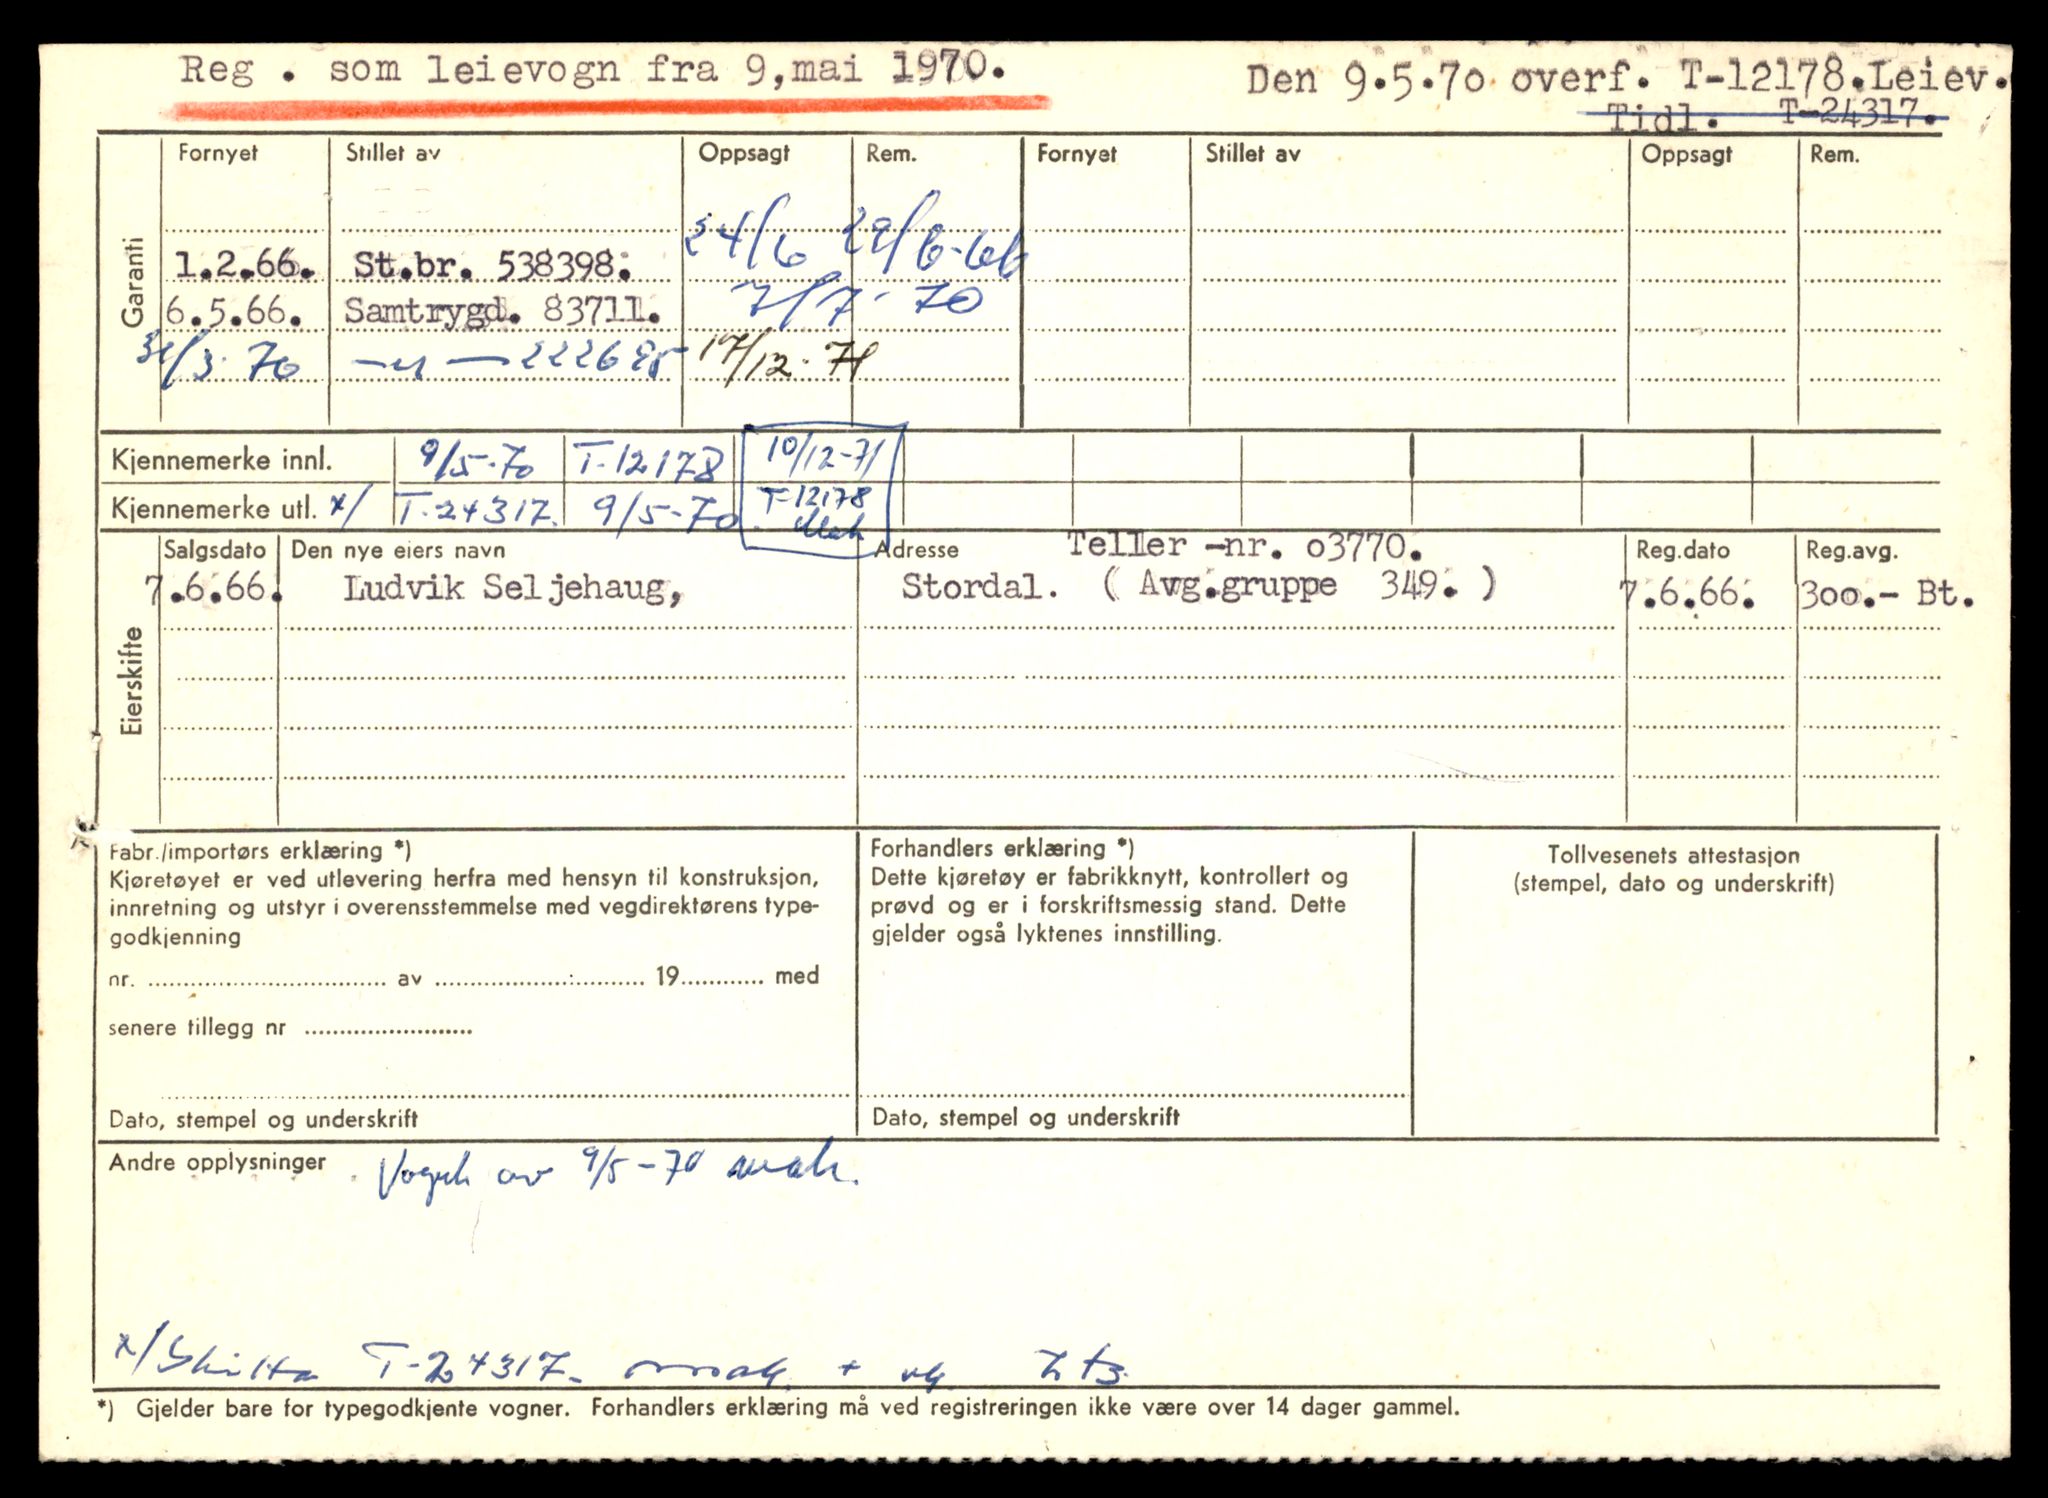 Reg . som leievogn fra 9,mai 1970.
Den 9.5.70 overf. T-12178.Leiev.
Tidl. T-24317.
Garanti
Fornyet Stillet av Oppsagt Rem. Fornyet Stillet av Oppsagt Rem.
24/6 29/6-66
1.2.66. St.br. 538398.
6.5.66. Samtrygd. 83711. 7/7-70
31/3-70 —"— 17/12-71
Kjennemerke innl. 9/5-70 T-12178 10/12-71
Kjennemerke utl. x/ T-24317. 9/5-70 T-12178
Mah
Eierskifte
Teller -nr. 03770.
Salgsdato Den nye eiers navn Adresse Reg.dato Reg.avg.
7.6.66. Ludvik Seljehaug, Stordal. ( Avg.gruppe 349. ) 7.6.66. 300.- Bt.
Fabr./importørs erklæring *)
Kjøretøyet er ved utlevering herfra med hensyn til konstruksjon,
innretning og utstyr i overensstemmelse med vegdirektørens type-
godkjenning
nr. av 19 med
senere tillegg nr
Dato, stempel og underskrift
Forhandlers erklæring *)
Dette kjøretøy er fabrikknytt, kontrollert og
prøvd og er i forskriftsmessig stand. Dette
gjelder også lyktenes innstilling.
Dato, stempel og underskrift
Tollvesenets attestasjon
(stempel, dato og underskrift)
Andre opplysninger
av 9/5-70 mah.
x/ Skilta T-24317-
*) Gjelder bare for typegodkjente vogner. Forhandlers erklæring må ved registreringen ikke være over 14 dager gammel.